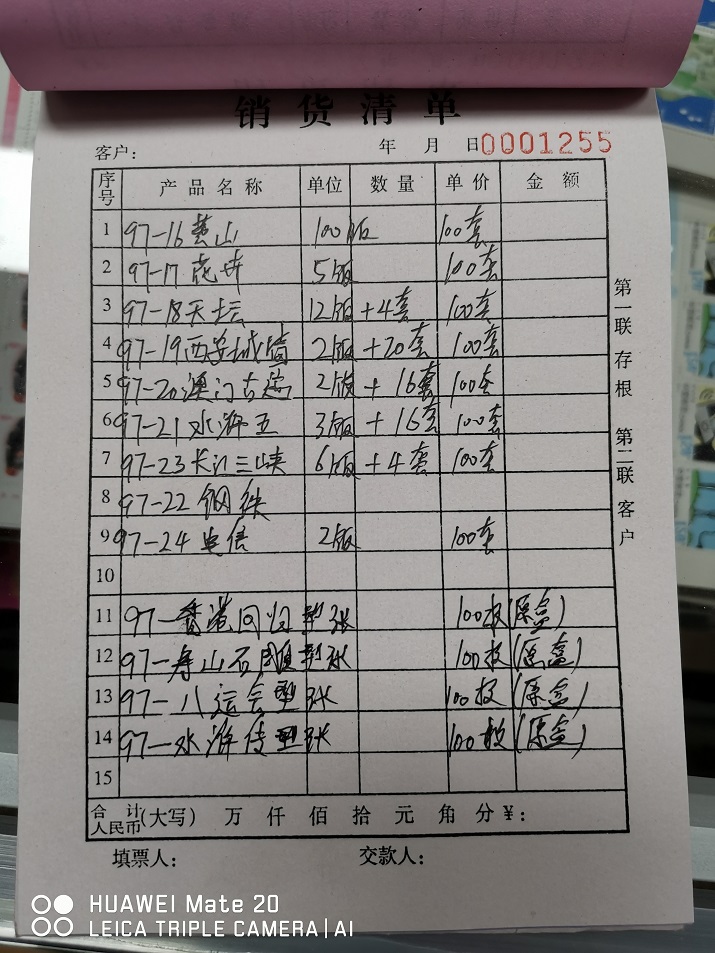 销货清单
客户: 年 月 日 0001255
序号 产品名称 单位 数量 单价 金额
1 97-16黄山 100版 100套
2 97-17花卉 5版 100套
3 97-18天坛 12版+4套 100套
4 97-19西安城墙 2版+20套 100套
5 97-20澳门古建 2版+16套 100套
6 97-21水浒五 3版+16套 100套
7 97-23长江三峡 6版+4套 100套
8 97-22钢铁
9 97-24电信 2版 100套
10
11 97-香港回归型张 100枚(原盒)
12 97-寿山石雕型张 100枚(原盒)
13 97-八运会型张 100枚(原盒)
14 97-水浒传型张 100枚(原盒)
15
合计人民币(大写) 万 仟 佰 拾 元 角 分 ¥:
填票人: 交款人:
第一联 存根 第二联 客户
HUAWEI Mate 20
LEICA TRIPLE CAMERA | AI